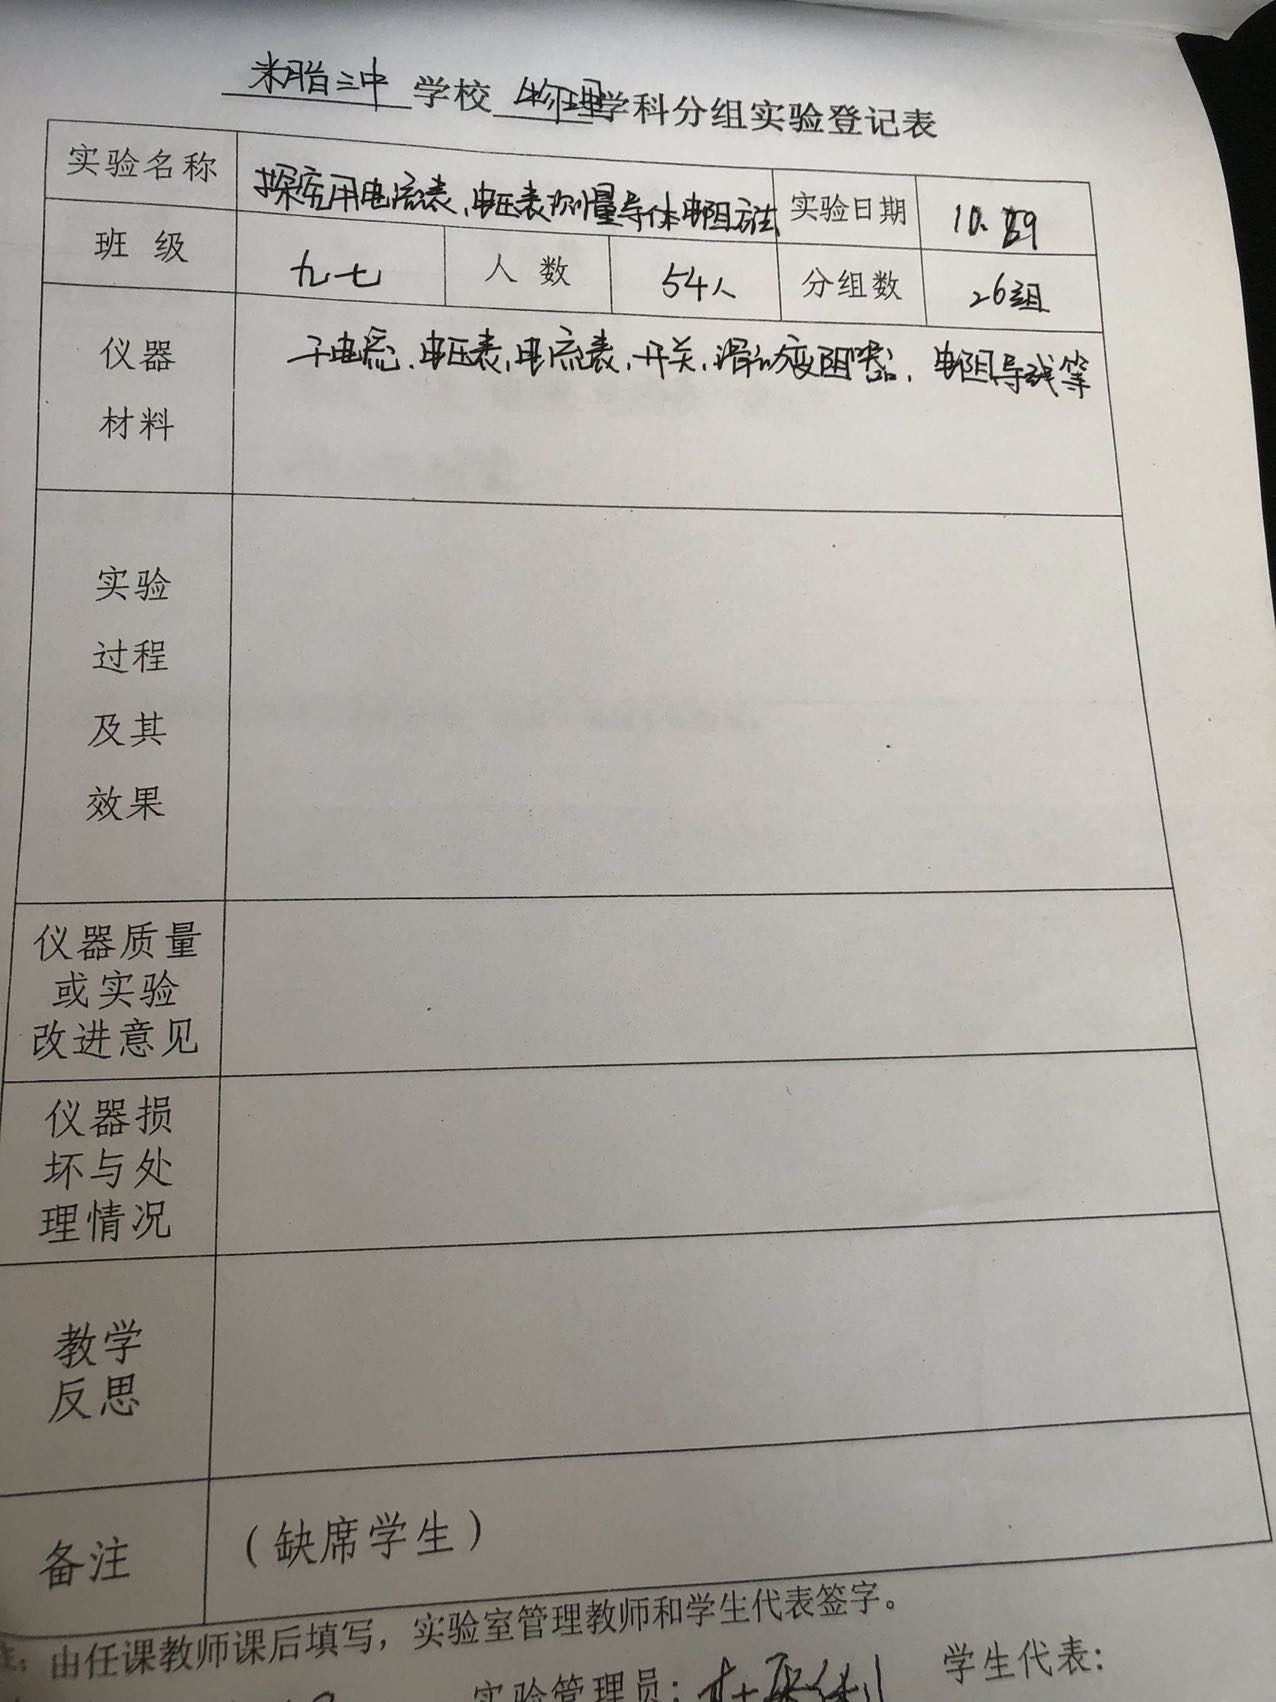 米脂三中 学校 物理 学科分组实验登记表
实验名称 探究用电流表、电压表测量导体电阻方法 实验日期 10.29
班 级 九七 人 数 54人 分组数 26组
仪器 干电池、电压表、电流表、开关、滑动变阻器、电阻导线等
材料
实验
过程
及其
效果
仪器质量
或实验
改进意见
仪器损
坏与处
理情况
教学
反思
备注 (缺席学生)
注：由任课教师课后填写，实验室管理教师和学生代表签字。
实验管理员： 学生代表：